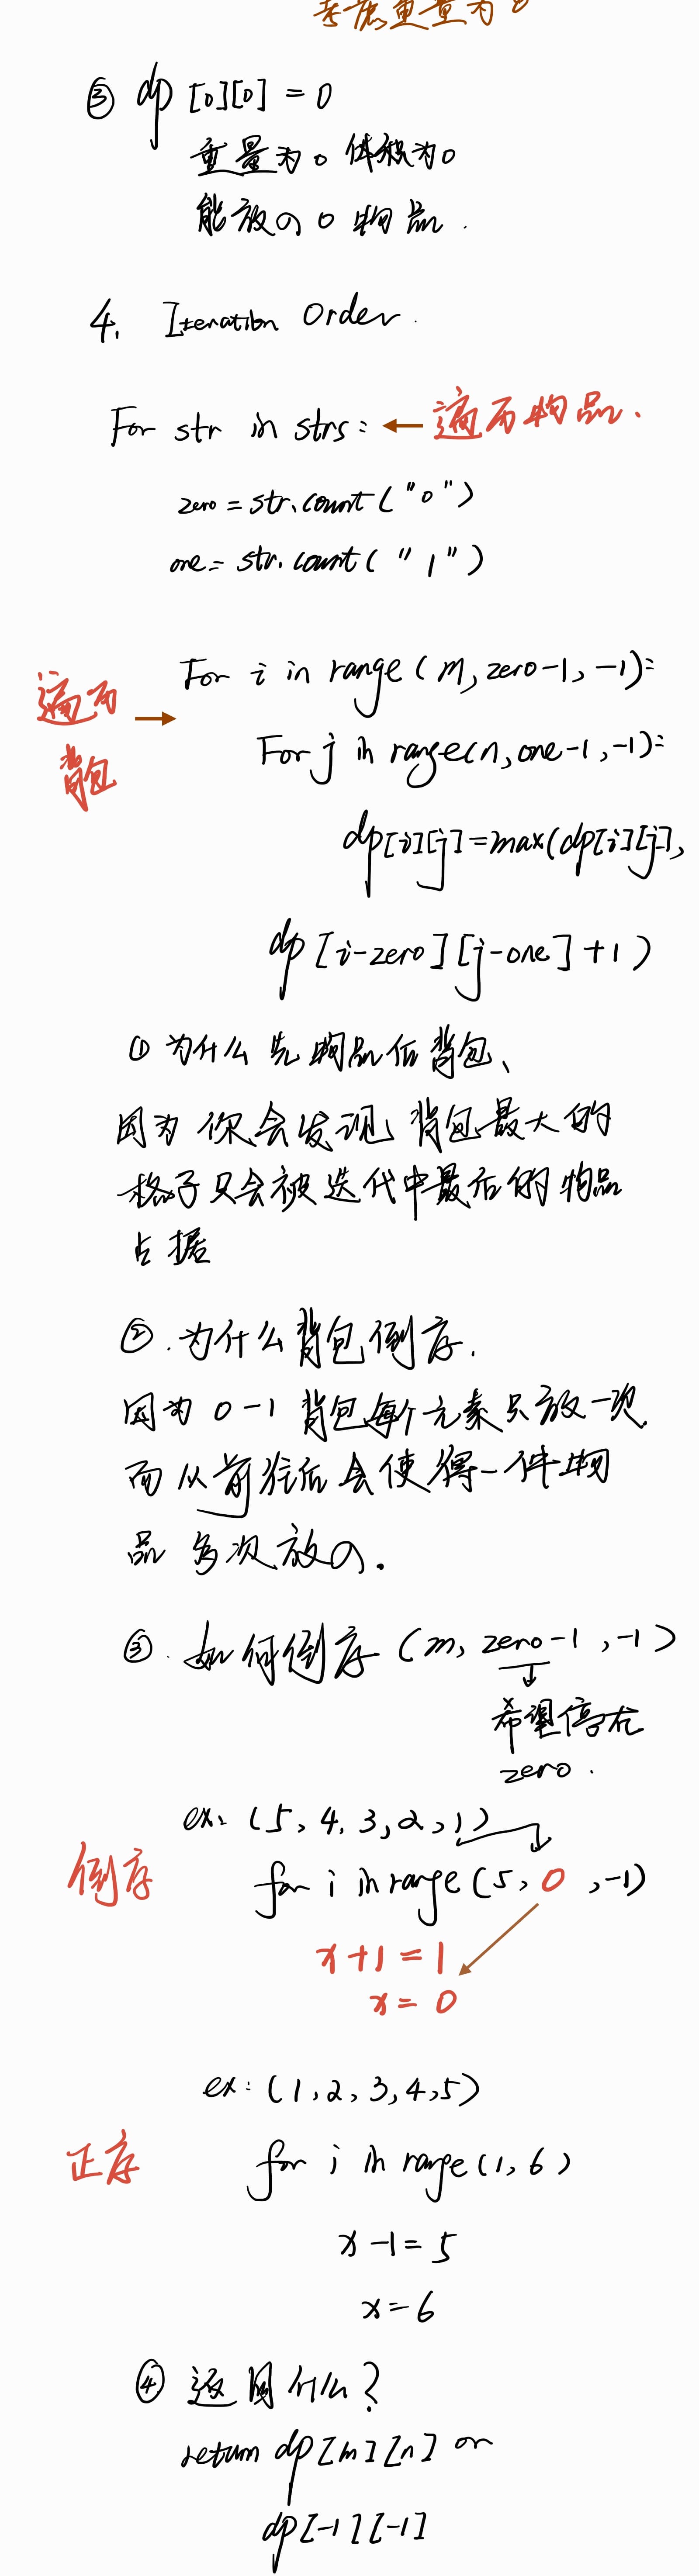 考虑重量为0
③ dp[0][0] = 0
重量为0 体积为0
能放入 0 物品.
4. Iteration Order.
For str in strs: ← 遍历物品.
zero = str.count("0")
one = str.count("1")
遍历背包 → For i in range(m, zero-1, -1):
For j in range(n, one-1, -1):
dp[i][j] = max(dp[i][j],
dp[i-zero][j-one] + 1)
① 为什么先物品后背包、
因为你会发现背包最大的
格子只会被迭代中最后的物品
占据
②. 为什么背包倒序.
因为 0-1 背包每个元素只放一次
而从前往后会使得一件物
品多次放入.
③. 如何倒序 (m, zero-1, -1)
希望停在
zero.
ex: (5, 4, 3, 2, 1)
倒序 for i in range(5, 0, -1)
x+1 = 1
x = 0
ex: (1, 2, 3, 4, 5)
正序 for i in range(1, 6)
x-1 = 5
x = 6
④ 返回什么?
return dp[m][n] or
dp[-1][-1]